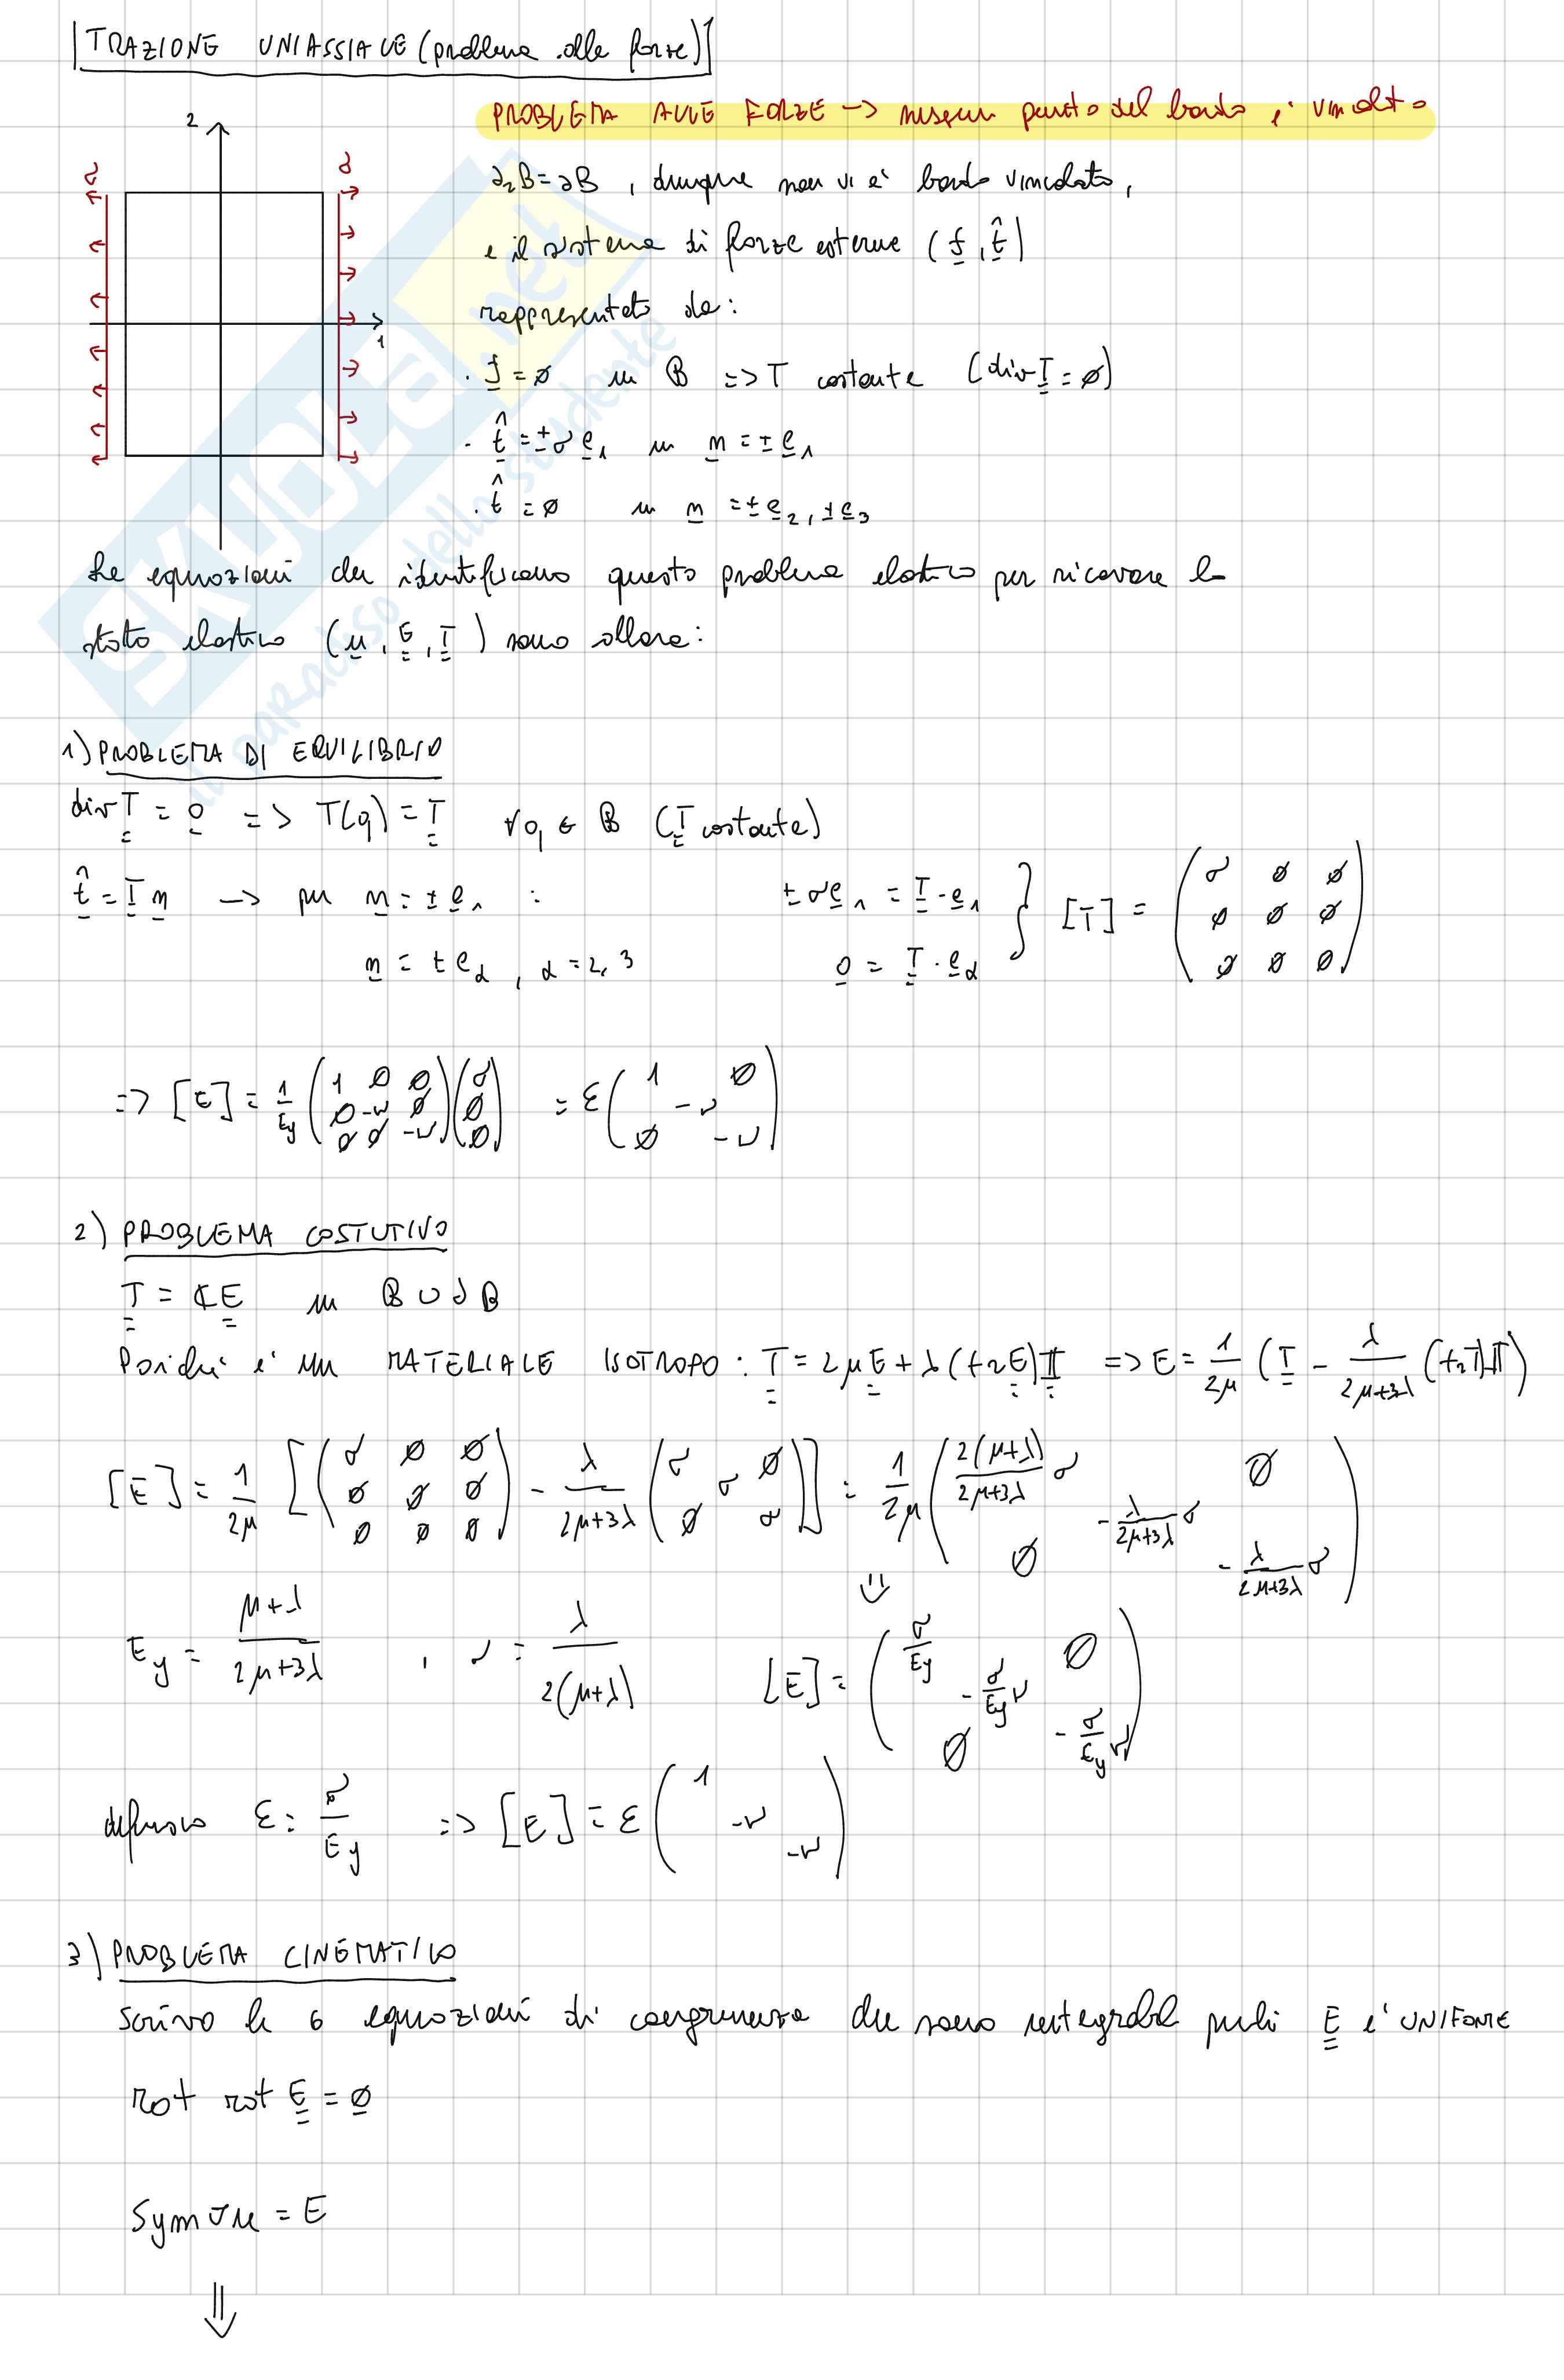 TRAZIONE UNIASSIALE (problema alle forze)
PROBLEMA ALLE FORZE -> nessun punto del bordo è vincolato
2
σ σ
1
∂₂B = ∂B , dunque non vi è bordo vincolato,
e il sistema di forze esterne (f, t̂)
rappresentato da:
· f = ∅ in B => T costante (div T = ∅)
· t̂ = ±σ e₁ in n = ±e₁
· t̂ = ∅ in n = ±e₂, ±e₃
Le equazioni che identificano questo problema elastico per ricavare lo
stato elastico (u, E, T) sono allora:
1) PROBLEMA DI EQUILIBRIO
div T = 0 => T(q) = T ∀q ∈ B (T costante)
t̂ = T n -> per n = ±e₁ : ±σe₁ = T·e₁
n = ±e_α , α = 2, 3 0 = T·e_α } [T] = (σ ∅ ∅ ; ∅ ∅ ∅ ; ∅ ∅ ∅)
=> [E] = 1/E_y (1 0 0 ; 0 -ν 0 ; 0 0 -ν)(σ ; 0 ; 0) = ε(1 ∅ ; -ν ; ∅ -ν)
2) PROBLEMA COSTUTIVO
T = ℂE in B ∪ ∂B
Poiché è un MATERIALE ISOTROPO : T = 2μE + λ(trE)I => E = 1/2μ (T - λ/(2μ+3λ) (trT)I)
[E] = 1/2μ [(σ ∅ ∅ ; ∅ ∅ ∅ ; ∅ ∅ ∅) - λ/(2μ+3λ) (σ ∅ ; σ ; ∅ σ)] = 1/2μ (2(μ+λ)/(2μ+3λ) σ ∅ ; -λ/(2μ+3λ) σ ; ∅ -λ/(2μ+3λ) σ)
E_y = (μ+λ)/(2μ+3λ) , ν = λ/(2(μ+λ)) [E] = (σ/E_y ∅ ; -σ/E_y ν ; ∅ -σ/E_y ν)
definisco ε = σ/E_y => [E] = ε(1 ; -ν ; -ν)
3) PROBLEMA CINEMATICO
scrivo le 6 equazioni di congruenza che sono integrabili perché E è UNIFORME
rot rot E = ∅
Sym ∇u = E
⇓
SKUOLA.net
il paradiso dello studente